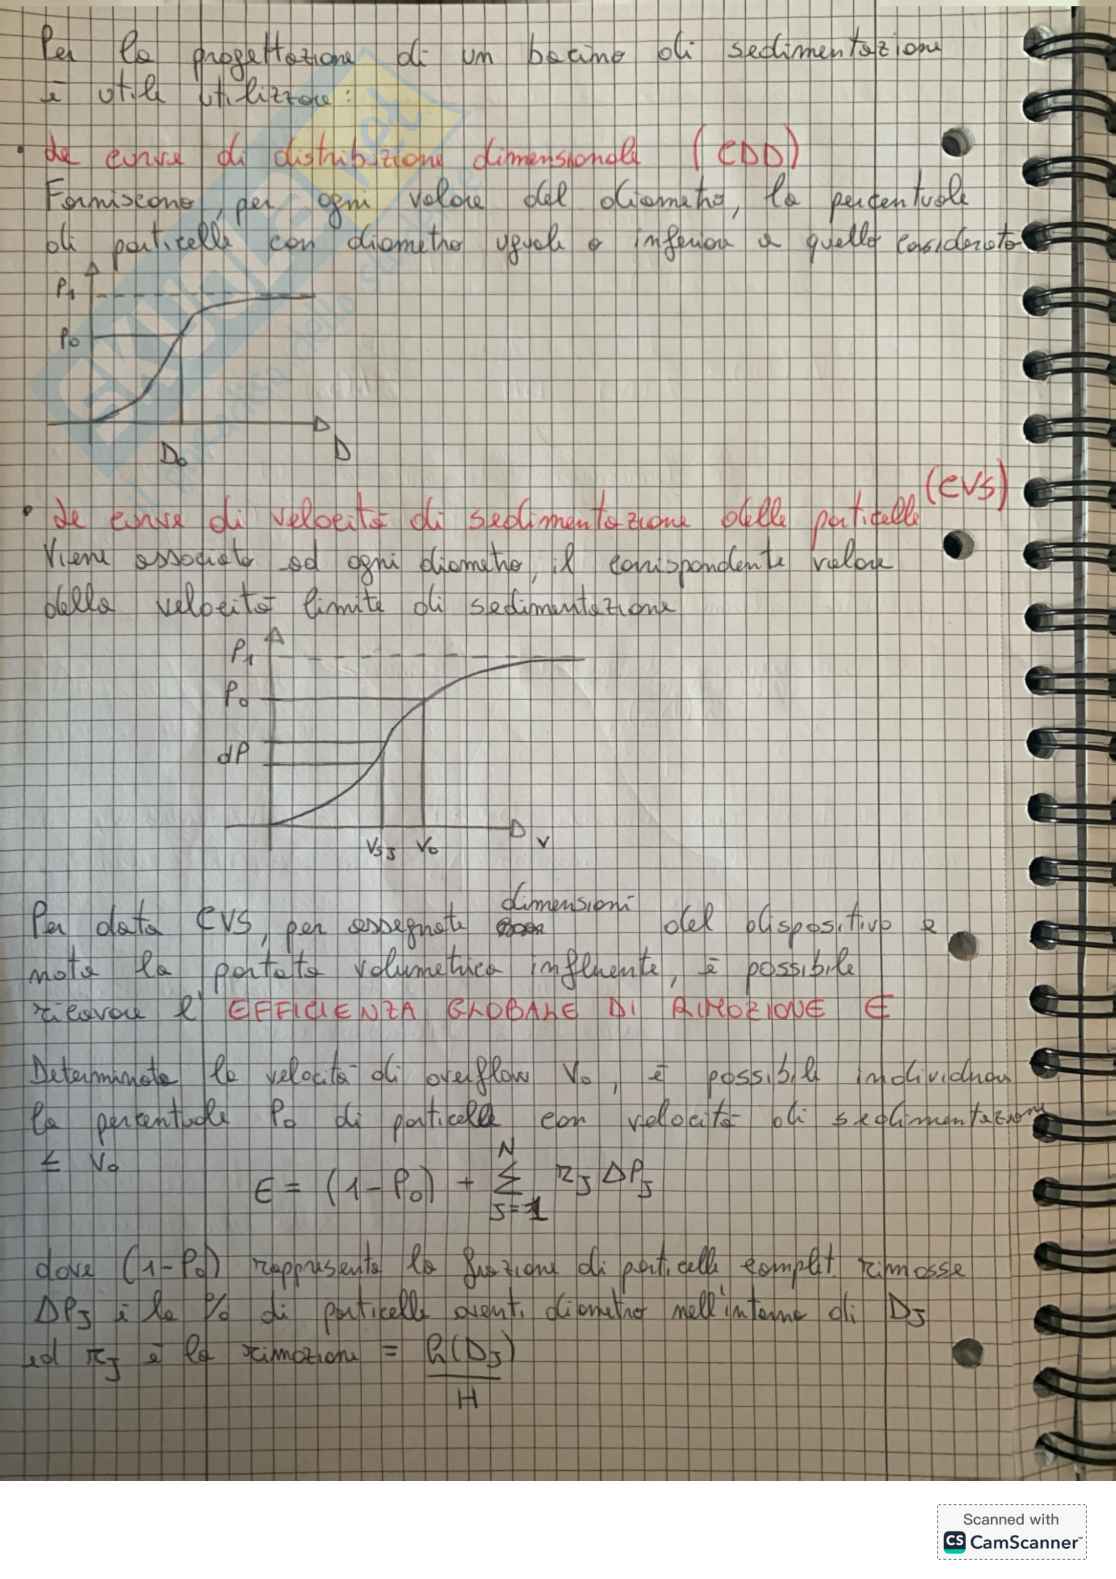 Per la progettazione di un bacino di sedimentazione
è utile utilizzare:
• Le curve di distribuzione dimensionale (CDD)
Forniscono, per ogni valore del diametro, la percentuale
di particelle con diametro uguale o inferiore a quello considerato
P1
P0
D0
D
• Le curve di velocità di sedimentazione delle particelle (CVS)
Viene associato ad ogni diametro, il corrispondente valore
della velocità limite di sedimentazione
P1
P0
dP
VsJ V0 v
Per data CVS, per assegnate dimensioni del dispositivo e
nota la portata volumetrica influente, è possibile
ricavare l' EFFICIENZA GLOBALE DI RIMOZIONE E
Determinata la velocità di overflow V0, è possibile individuare
la percentuale P0 di particelle con velocità di sedimentazione
≤ V0
E = (1-P0) + N Σ J=1 rJ ΔPJ
dove (1-P0) rappresenta la frazione di particelle complet. rimosse
ΔPJ è la % di particelle aventi diametro nell'intorno di DJ
ed rJ è la rimozione = h(DJ)
H
Scanned with
CS CamScanner